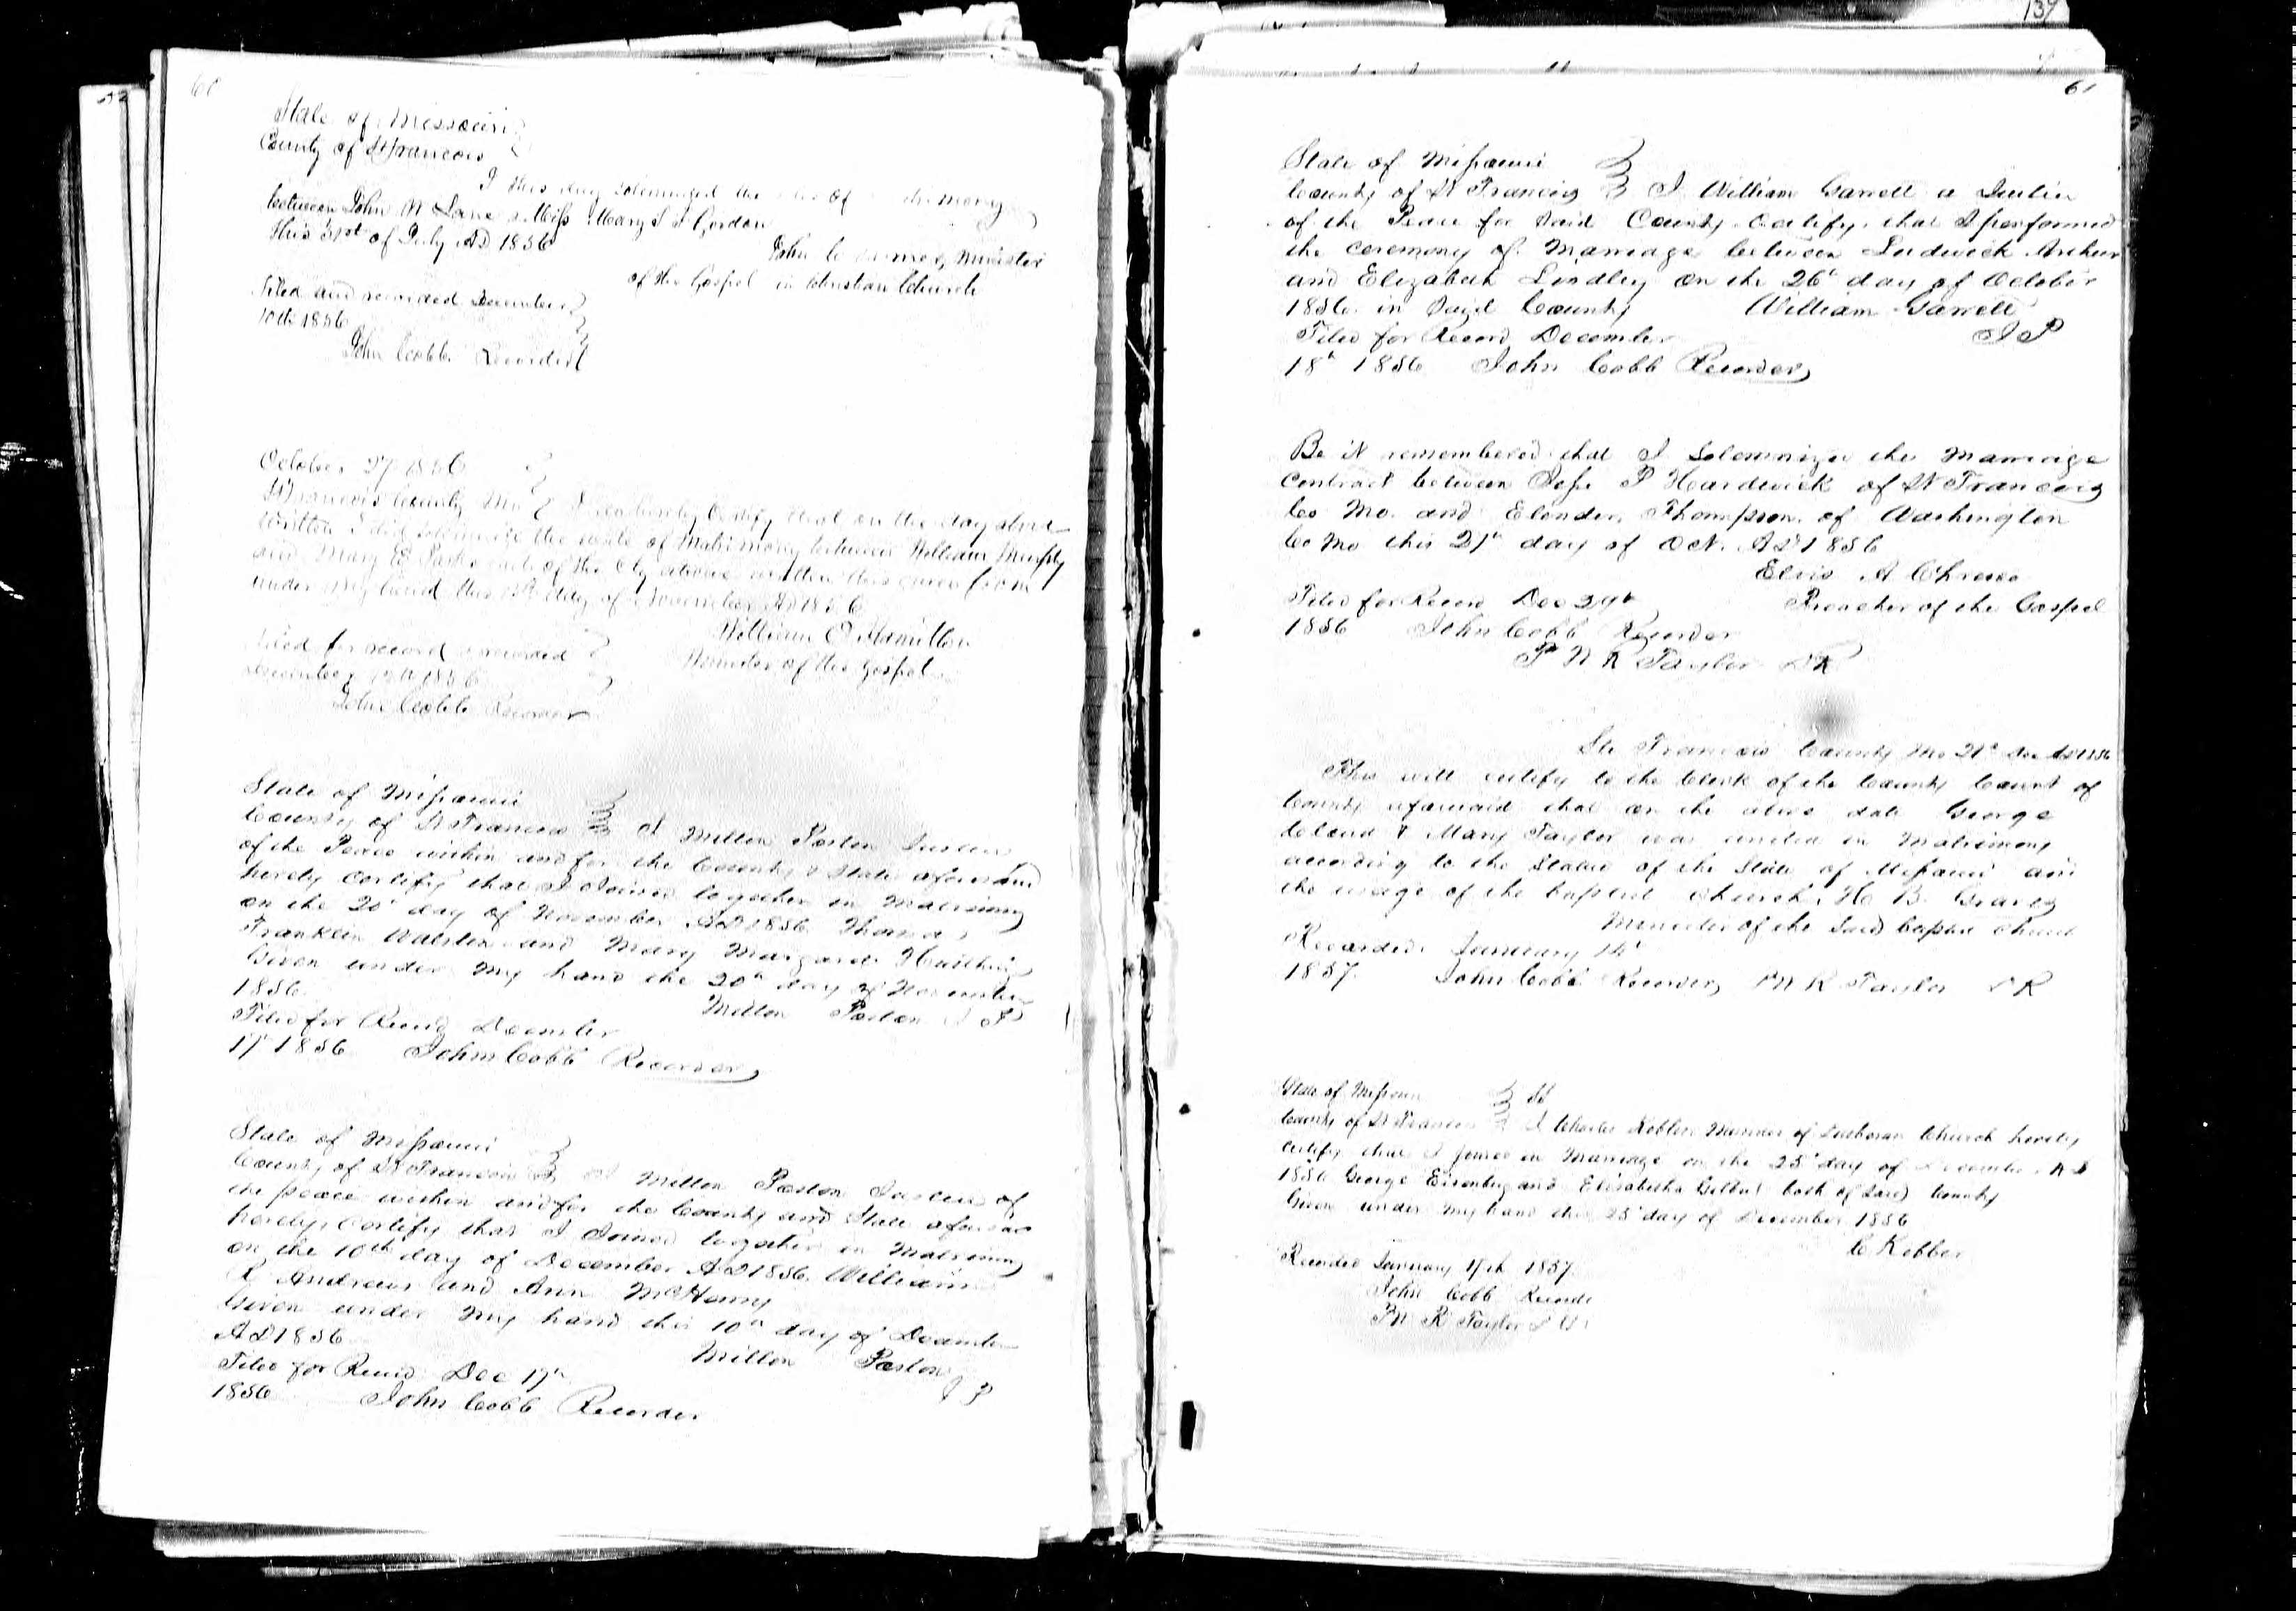 60
State of Missouri
County of St Francois
I this day solemnized the rites of
between John W Lane & Miss Mary
this 31st of July AD 1856
John Minister
of the Gospel in Christian Church
Filed and recorded December
10th 1856
John Cobb Recorder
October 27 1856
St Francois County Mo I do hereby Certify that on the day above
written I did solemnize the of Matrimony between William Murphy
and Mary E of the Cty above written this given from
under my hand this day of November AD 1856
William C Hamilton
Minister of the Gospel
Filed for record & recorded
December 1856
John Cobb Recorder
State of Missouri
County of St Francois I Milton Poston Justice
of the Peace within and for the County & State aforesaid
hereby certify that I Joined together in Matrimony
on the 20th day of November AD 1856 Thomas
Franklin and Mary Margaret
Given under my hand the 20th day of November
1856
Milton Poston J P
Filed for Record December
17 1856 John Cobb Recorder
State of Missouri
County of St Francois I Milton Poston Justice of
the peace within and for the County and State aforesaid
hereby Certify that I Joined together in Matrimony
on the 10th day of December AD 1856 William
R Andrews and Ann McHenry
Given under my hand this 10th day of December
AD 1856
Milton Poston
J P
Filed for Record Dec 17th
1856 John Cobb Recorder
139
61
State of Missouri
County of St Francois I William Garrett a Justice
of the Peace for Said County Certify that I performed
the ceremony of Marriage between Ludwick Arthur
and Elizabeth Lindley on the 26th day of October
1856 in Said County William Garrett
J P
Filed for Record December
18th 1856 John Cobb Recorder
Be it remembered that I Solemnized the Marriage
Contract between P Hardwick of St Francois
Co Mo. and Thompson of Washington
Co Mo this day of Oct. AD 1856
A
Preacher of the Gospel
Filed for Record Dec
1856 John Cobb Recorder
P N R Taylor D R
St Francois County Mo Dec AD 1856
This will certify to the Clerk of the County Court of
County aforesaid that on the above date George
& Mary Taylor was united in Matrimony
according to the Statue of the State of Missouri and
the usage of the baptist Church. H B Graves
Minister of the Said baptist church
Recorded January
1857. John Cobb Recorder, P N R Taylor D R
State of Missouri
County of St Francois I Charles Minister of Lutheran Church hereby
certify that I joined in Marriage on the 25th day of December A D
1856 George and Elisabetha both of Said County
Given under my hand this 25th day of December 1856
C
Recorded January 1857.
John Cobb Recorder
P N R Taylor